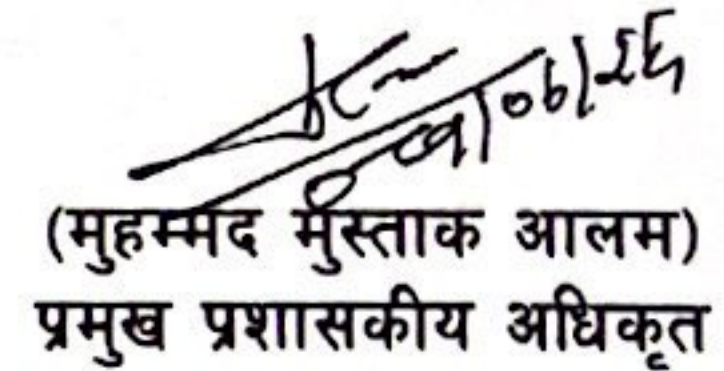 (मुहम्मद मुस्ताक आलम)
प्रमुख प्रशासकीय अधिकृत